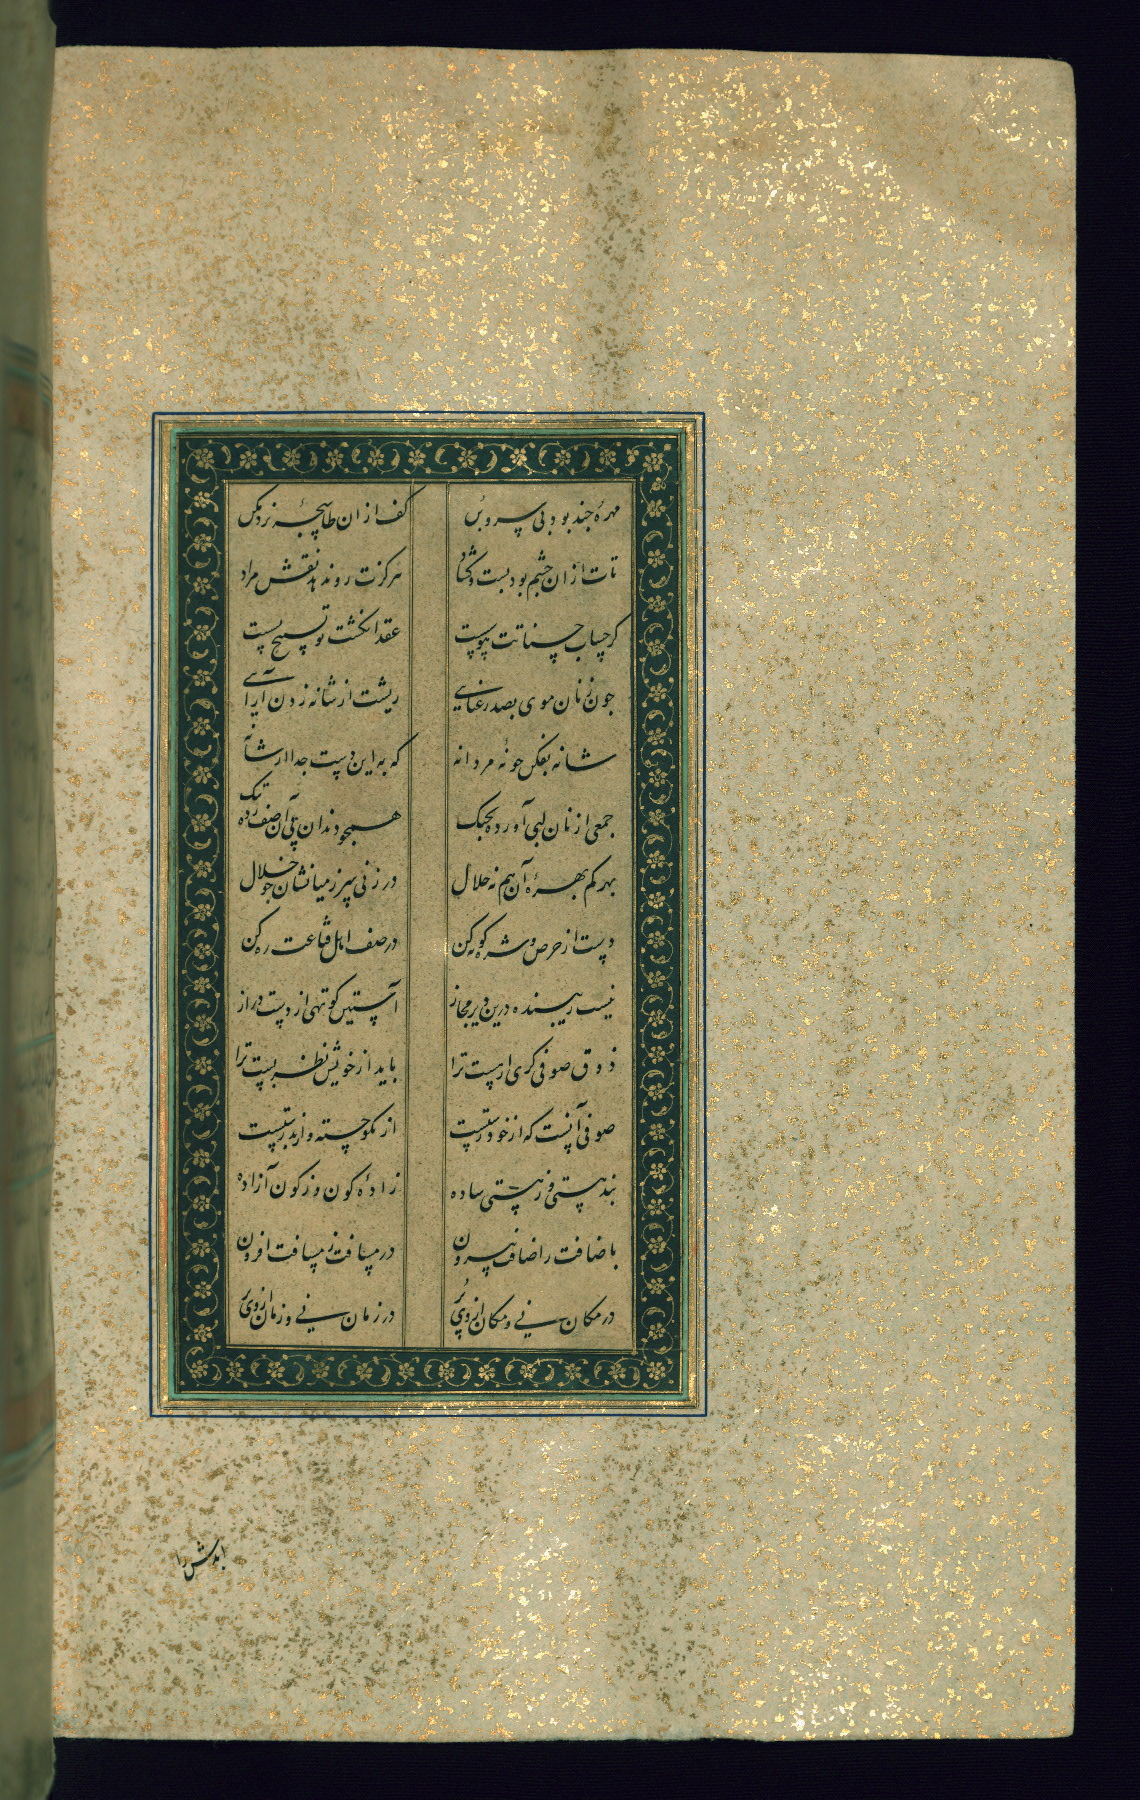 مهرهٔ چند بود بی سر و بن کف ازان طاسچهٔ نرد مکن
تات ازان چشم بود بست و گشاد هرگزت رو ندهد نقش مراد
کر حساب حسناتت نیوست عقد انکشت تو تسبیح بست
چون زنان موی بصد رعنایی ریشت از شانه زدن آرایی
شانه بفکن چو نهٔ مردانه که به این دست جدا از شانه
جمعی از نان لبی آورده بچنک همچو دندان پی آن صف زده تنک
بهر کم بهرهٔ آن هم نه حلال در زنی سر ز میانشان چو خلال
دست از حرص و شره کوته کن در صف اهل قناعت ره کن
نیست زیبنده درین دیر مجاز آستین کوته و از دست دراز
ذوق صوفی کری ار هست ترا باید از خویش نظر بست ترا
صوفی آنست که از خود رستست از نکو جسته و از بد رستست
بند هستی و ز هستی ساده زادهٔ کون و ز کون آزاده
با اضافت ز اضافت بیرون در مسافت ز مسافت افزون
در مکان نی و مکان ازوی پر در زمان نی و زمان ازوی پر
ابدش را